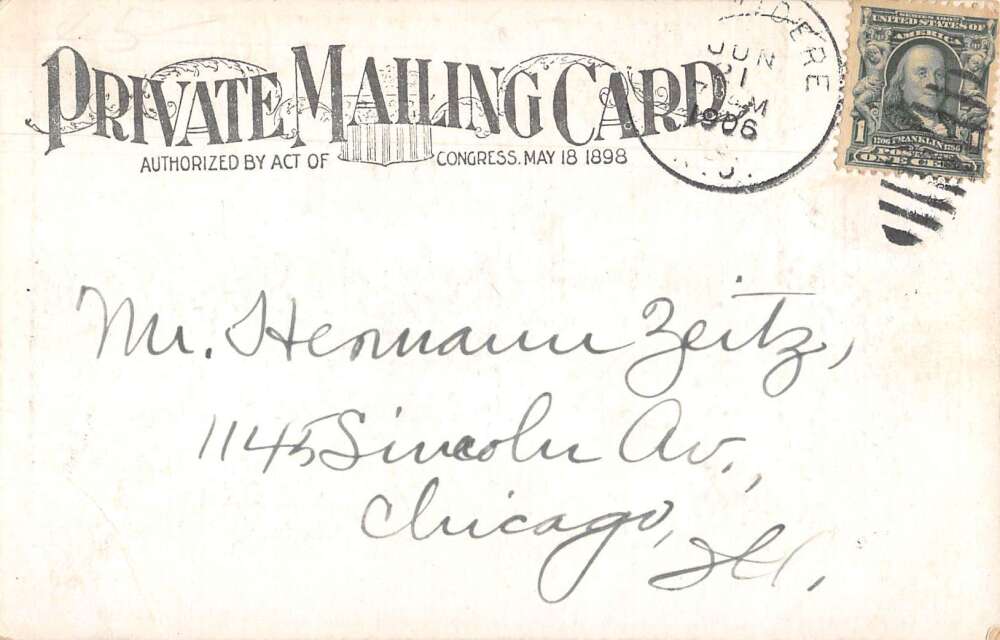 PRIVATE MAILING CARD
AUTHORIZED BY ACT OF CONGRESS. MAY 18 1898
JUN
21
M
1906
SERIES 1902
UNITED STATES OF
AMERICA
1
1706 FRANKLIN 1790
ONE CENT
Mr. Hermann Zeitz,
1145 Lincoln Av.,
Chicago, Ill,